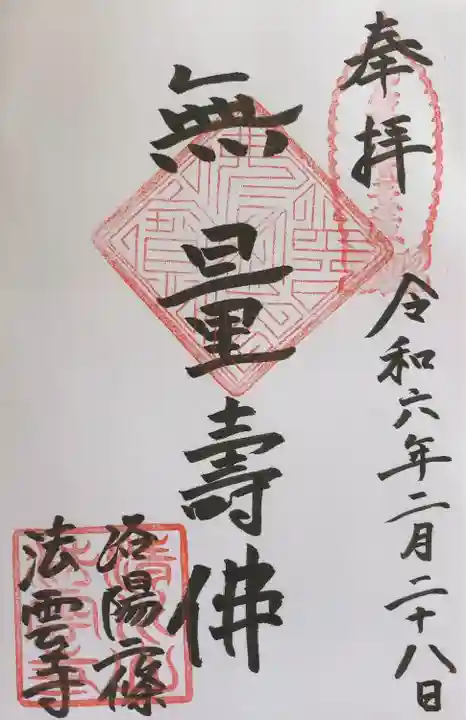 奉拝
令和六年二月二十八日
無量壽佛
洛陽二條
法雲寺